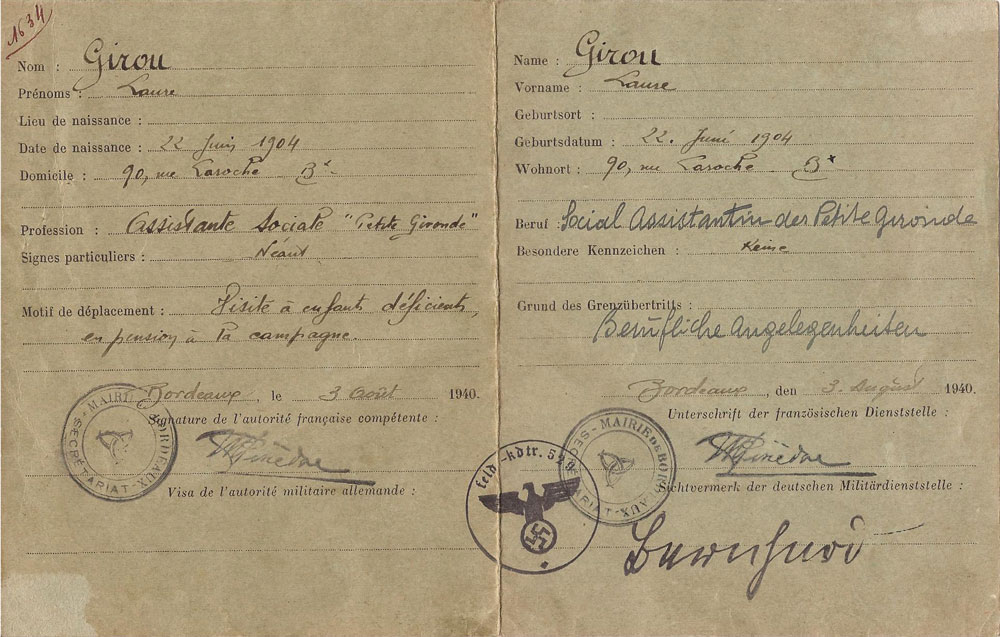 1634
Nom : Girou
Prénoms : Laure
Lieu de naissance :
Date de naissance : 22 Juin 1904
Domicile : 90, rue Laroche Bx
Profession : Assistante Sociale "Petite Gironde"
Signes particuliers : Néant
Motif de déplacement : Visite à enfants déficients,
en pension à la campagne.
Bordeaux, le 3 Août 1940.
Signature de l'autorité française compétente :
Visa de l'autorité militaire allemande :
MAIRIE DE BORDEAUX
SECRÉTARIAT
Name : Girou
Vorname : Laure
Geburtsort :
Geburtsdatum : 22. Juni 1904
Wohnort : 90, rue Laroche Bx
Beruf : Social Assistantin der Petite Gironde
Besondere Kennzeichen : Keine
Grund des Grenzübertritts :
Berufliche Angelegenheiten
Bordeaux, den 3. August 1940.
Unterschrift der französischen Dienststelle :
Sichtvermerk der deutschen Militärdienststelle :
MAIRIE DE BORDEAUX
Feld-kdtr. 529